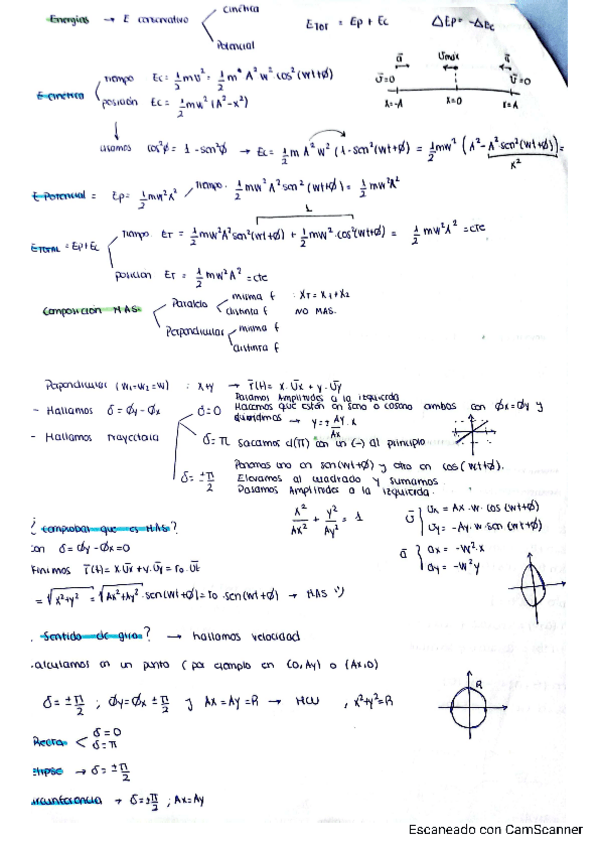 Energías → E conservativo
Cinética
Potencial
E_TOT = Ep + Ec
ΔEp = -ΔEc
E cinética
tiempo Ec = 1/2 mv² = 1/2 m A² w² cos²(wt+ϕ)
posición Ec = 1/2 mw² (A²-x²)
ā Vmáx ā
v̄=0 v̄=0
x=-A x=0 x=A
usamos cos²ϕ = 1 - sen²ϕ → Ec = 1/2 m A² w² (1 - sen²(wt+ϕ)) = 1/2 mw² (A² - A² sen²(wt+ϕ)) =
x²
E Potencial = Ep = 1/2 mw²A² / tiempo. 1/2 mw² A² sen² (wt+ϕ) = 1/2 mw²A²
1
E TOTAL = Ep + Ec
tiempo ET = 1/2 mw²A² sen²(wt+ϕ) + 1/2 mw² cos²(wt+ϕ) = 1/2 mw²A² = cte
posicion ET = 1/2 mw²A² = cte
Composición MAS
Paralelo
misma f : XT = X1 + X2
distinta f NO MAS.
Perpendicular
misma f
distinta f
Perpendicular (W1=W2=W) : x+y → r̄(t) = x·Ūx + y·Ūy
- Hallamos δ = ϕy - ϕx
δ=0
Pasamos Amplitudes a la izquierda
Hacemos que estén en seno o coseno ambas con ϕx=ϕy y
dividimos → y = ± Ay/Ax · x
- Hallamos trayectoria
δ = π sacamos el (π) con un (-) al principio
δ = ±π/2
Ponemos uno en sen(wt+ϕ) y otro en cos(wt+ϕ).
Elevamos al cuadrado y sumamos.
Pasamos Amplitudes a la izquierda.
x²/Ax² + y²/Ay² = 1
v̄ { Ux = Ax · w · cos (wt+ϕ)
Uy = -Ay · w · sen (wt+ϕ)
ā { ax = -w²·x
ay = -w²y
¿Comprobar que es MAS?
con δ = ϕy - ϕx = 0
r̄(t) = x·Ūx + y·Ūy = r0·Ūt
= √x²+y² = √Ax²+Ay² · sen(wt+ϕ) = r0 · sen(wt+ϕ) → MAS
Sentido de giro? → hallamos velocidad
calculamos en un punto (por ejemplo en (0,Ay) o (Ax,0)
δ = ±π/2 ; ϕy = ϕx ± π/2 y Ax = Ay = R → MCU , x²+y²=R
R
Recta
δ = 0
δ = π
elipse → δ = ±π/2
circunferencia → δ = ±π/2 ; Ax=Ay
Escaneado con CamScanner